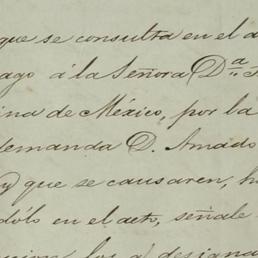 que se consulta en el a
ago á la Señora D.ª
ina de México, por la
demanda D. Amado
y que se causaren, h
dólo en el acto, señale
los